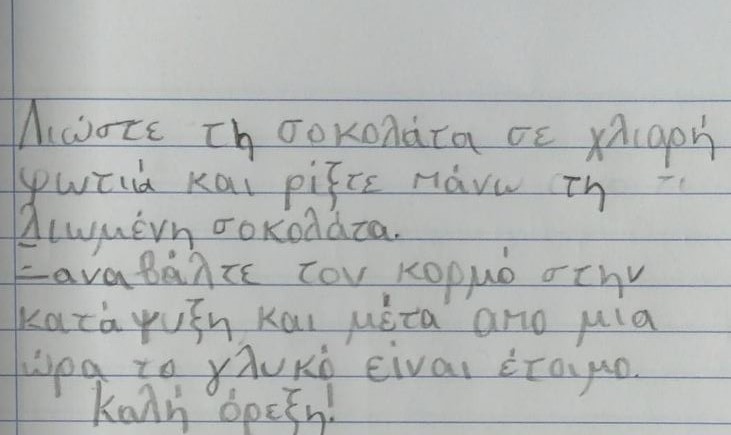 Λιώστε τη σοκολάτα σε χλιαρή
φωτιά και ρίξτε πάνω τη
λιωμένη σοκολάτα.
Ξαναβάλτε τον κορμό στην
κατάψυξη και μέτα απο μια
ώρα το γλυκό είναι έτοιμο.
Καλή όρεξη!